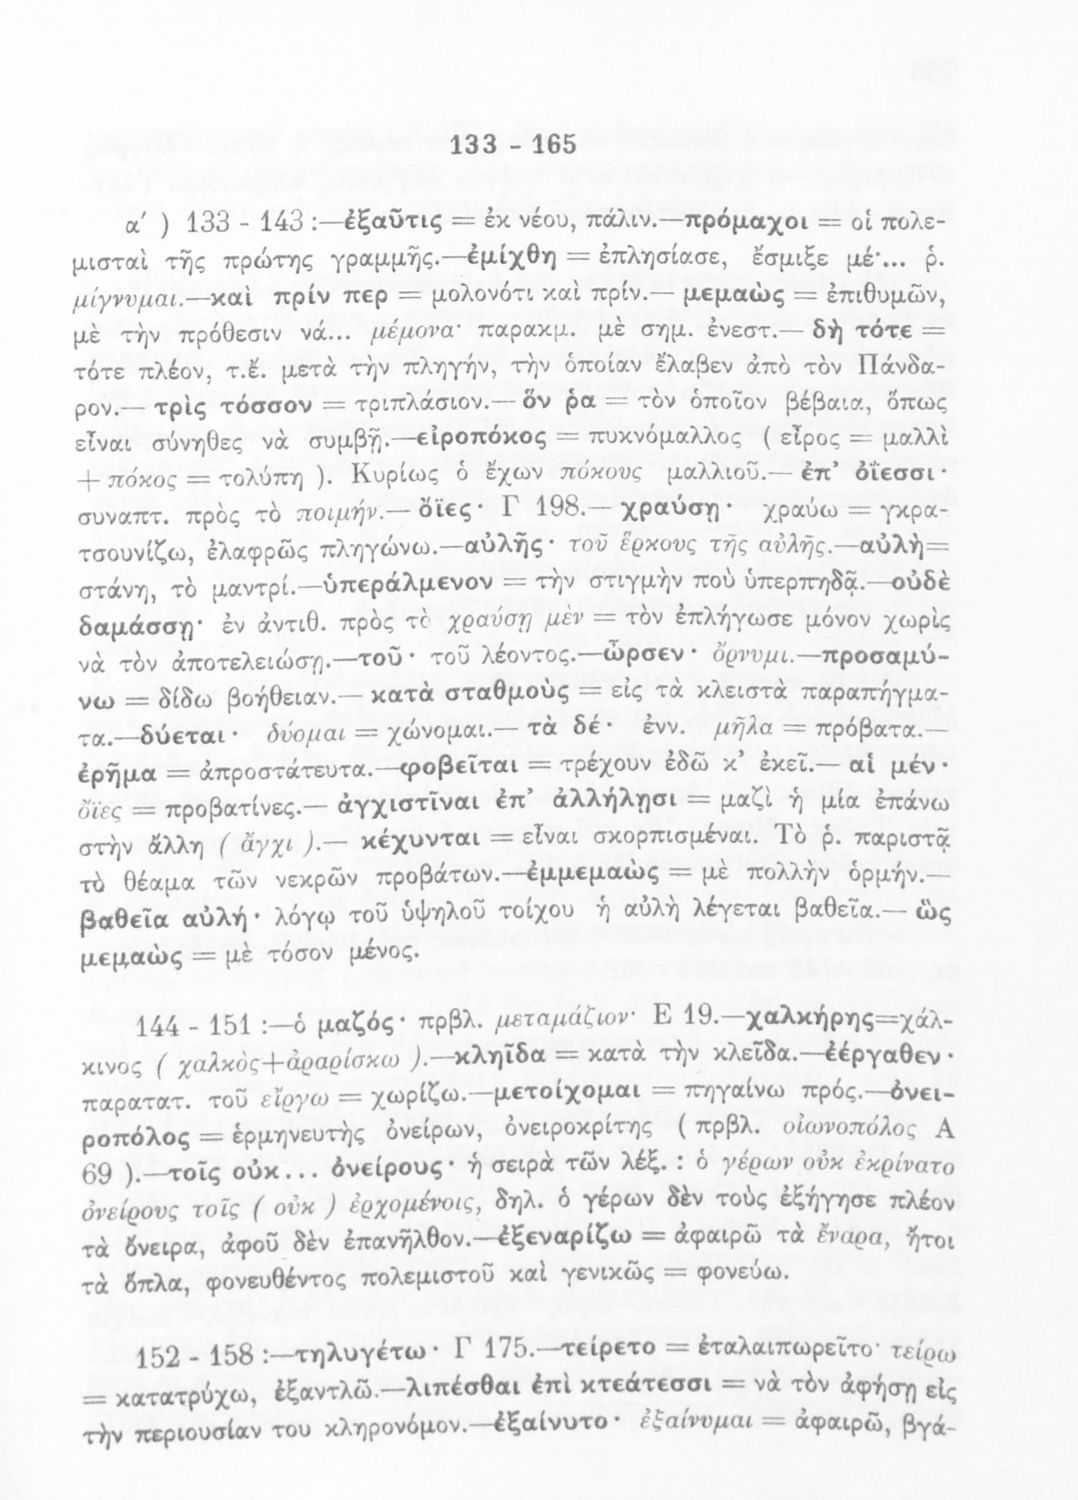 133 - 165
α′ ) 133 - 143 :—ἐξαῦτις = ἐκ νέου, πάλιν.—πρόμαχοι = οἱ πολε-
μισταὶ τῆς πρώτης γραμμῆς.—ἐμίχθη = ἐπλησίασε, ἔσμιξε μέ·... ῥ.
μίγνυμαι.—καὶ πρίν περ = μολονότι καὶ πρίν.— μεμαὼς = ἐπιθυμῶν,
μὲ τὴν πρόθεσιν νά... μέμονα· παρακμ. μὲ σημ. ἐνεστ.— δὴ τότε =
τότε πλέον, τ.ἔ. μετὰ τὴν πληγήν, τὴν ὁποίαν ἔλαβεν ἀπὸ τὸν Πάνδα-
ρον.— τρὶς τόσσον = τριπλάσιον.— ὅν ῥα = τὸν ὁποῖον βέβαια, ὅπως
εἶναι σύνηθες νὰ συμβῇ.—εἰροπόκος = πυκνόμαλλος ( εἶρος = μαλλὶ
+ πόκος = τολύπη ). Κυρίως ὁ ἔχων πόκους μαλλιοῦ.— ἐπ’ ὀΐεσσι·
συναπτ. πρὸς τὸ ποιμήν.— ὄϊες· Γ 198.— χραύσῃ· χραύω = γκρα-
τσουνίζω, ἐλαφρῶς πληγώνω.—αὐλῆς· τοῦ ἕρκους τῆς αὐλῆς.—αὐλὴ=
στάνη, τὸ μαντρί.—ὑπεράλμενον = τὴν στιγμὴν ποὺ ὑπερπηδᾷ.—οὐδὲ
δαμάσσῃ· ἐν ἀντιθ. πρὸς τὸ χραύσῃ μὲν = τὸν ἐπλήγωσε μόνον χωρὶς
νὰ τὸν ἀποτελειώσῃ.—τοῦ· τοῦ λέοντος.—ὦρσεν· ὄρνυμι.—προσαμύ-
νω = δίδω βοήθειαν.— κατὰ σταθμοὺς = εἰς τὰ κλειστὰ παραπήγμα-
τα.—δύεται· δύομαι = χώνομαι.— τὰ δέ· ἐνν. μῆλα = πρόβατα.—
ἐρῆμα = ἀπροστάτευτα.—φοβεῖται = τρέχουν ἐδῶ κ’ ἐκεῖ.— αἱ μέν·
ὄϊες = προβατίνες.— ἀγχιστῖναι ἐπ’ ἀλλήλῃσι = μαζὶ ἡ μία ἐπάνω
στὴν ἄλλη ( ἄγχι ).— κέχυνται = εἶναι σκορπισμέναι. Τὸ ῥ. παριστᾷ
τὸ θέαμα τῶν νεκρῶν προβάτων.—ἐμμεμαὼς = μὲ πολλὴν ὁρμήν.—
βαθεῖα αὐλή· λόγῳ τοῦ ὑψηλοῦ τοίχου ἡ αὐλὴ λέγεται βαθεῖα.— ὣς
μεμαὼς = μὲ τόσον μένος.
144 - 151 :—ὁ μαζός· πρβλ. μεταμάζιον· Ε 19.—χαλκήρης=χάλ-
κινος ( χαλκὸς+ἀραρίσκω ).—κληῖδα = κατὰ τὴν κλεῖδα.—ἐέργαθεν·
παρατατ. τοῦ εἴργω = χωρίζω.—μετοίχομαι = πηγαίνω πρός.—ὀνει-
ροπόλος = ἑρμηνευτὴς ὀνείρων, ὀνειροκρίτης ( πρβλ. οἰωνοπόλος Α
69 ).—τοῖς οὐκ... ὀνείρους· ἡ σειρὰ τῶν λέξ. : ὁ γέρων οὐκ ἐκρίνατο
ὀνείρους τοῖς ( οὐκ ) ἐρχομένοις, δηλ. ὁ γέρων δὲν τοὺς ἐξήγησε πλέον
τὰ ὄνειρα, ἀφοῦ δὲν ἐπανῆλθον.—ἐξεναρίζω = ἀφαιρῶ τὰ ἔναρα, ἤτοι
τὰ ὅπλα, φονευθέντος πολεμιστοῦ καὶ γενικῶς = φονεύω.
152 - 158 :—τηλυγέτω· Γ 175.—τείρετο = ἐταλαιπωρεῖτο· τείρω
= κατατρύχω, ἐξαντλῶ.—λιπέσθαι ἐπὶ κτεάτεσσι = νὰ τὸν ἀφήσῃ εἰς
τὴν περιουσίαν του κληρονόμον.—ἐξαίνυτο· ἐξαίνυμαι = ἀφαιρῶ, βγά-